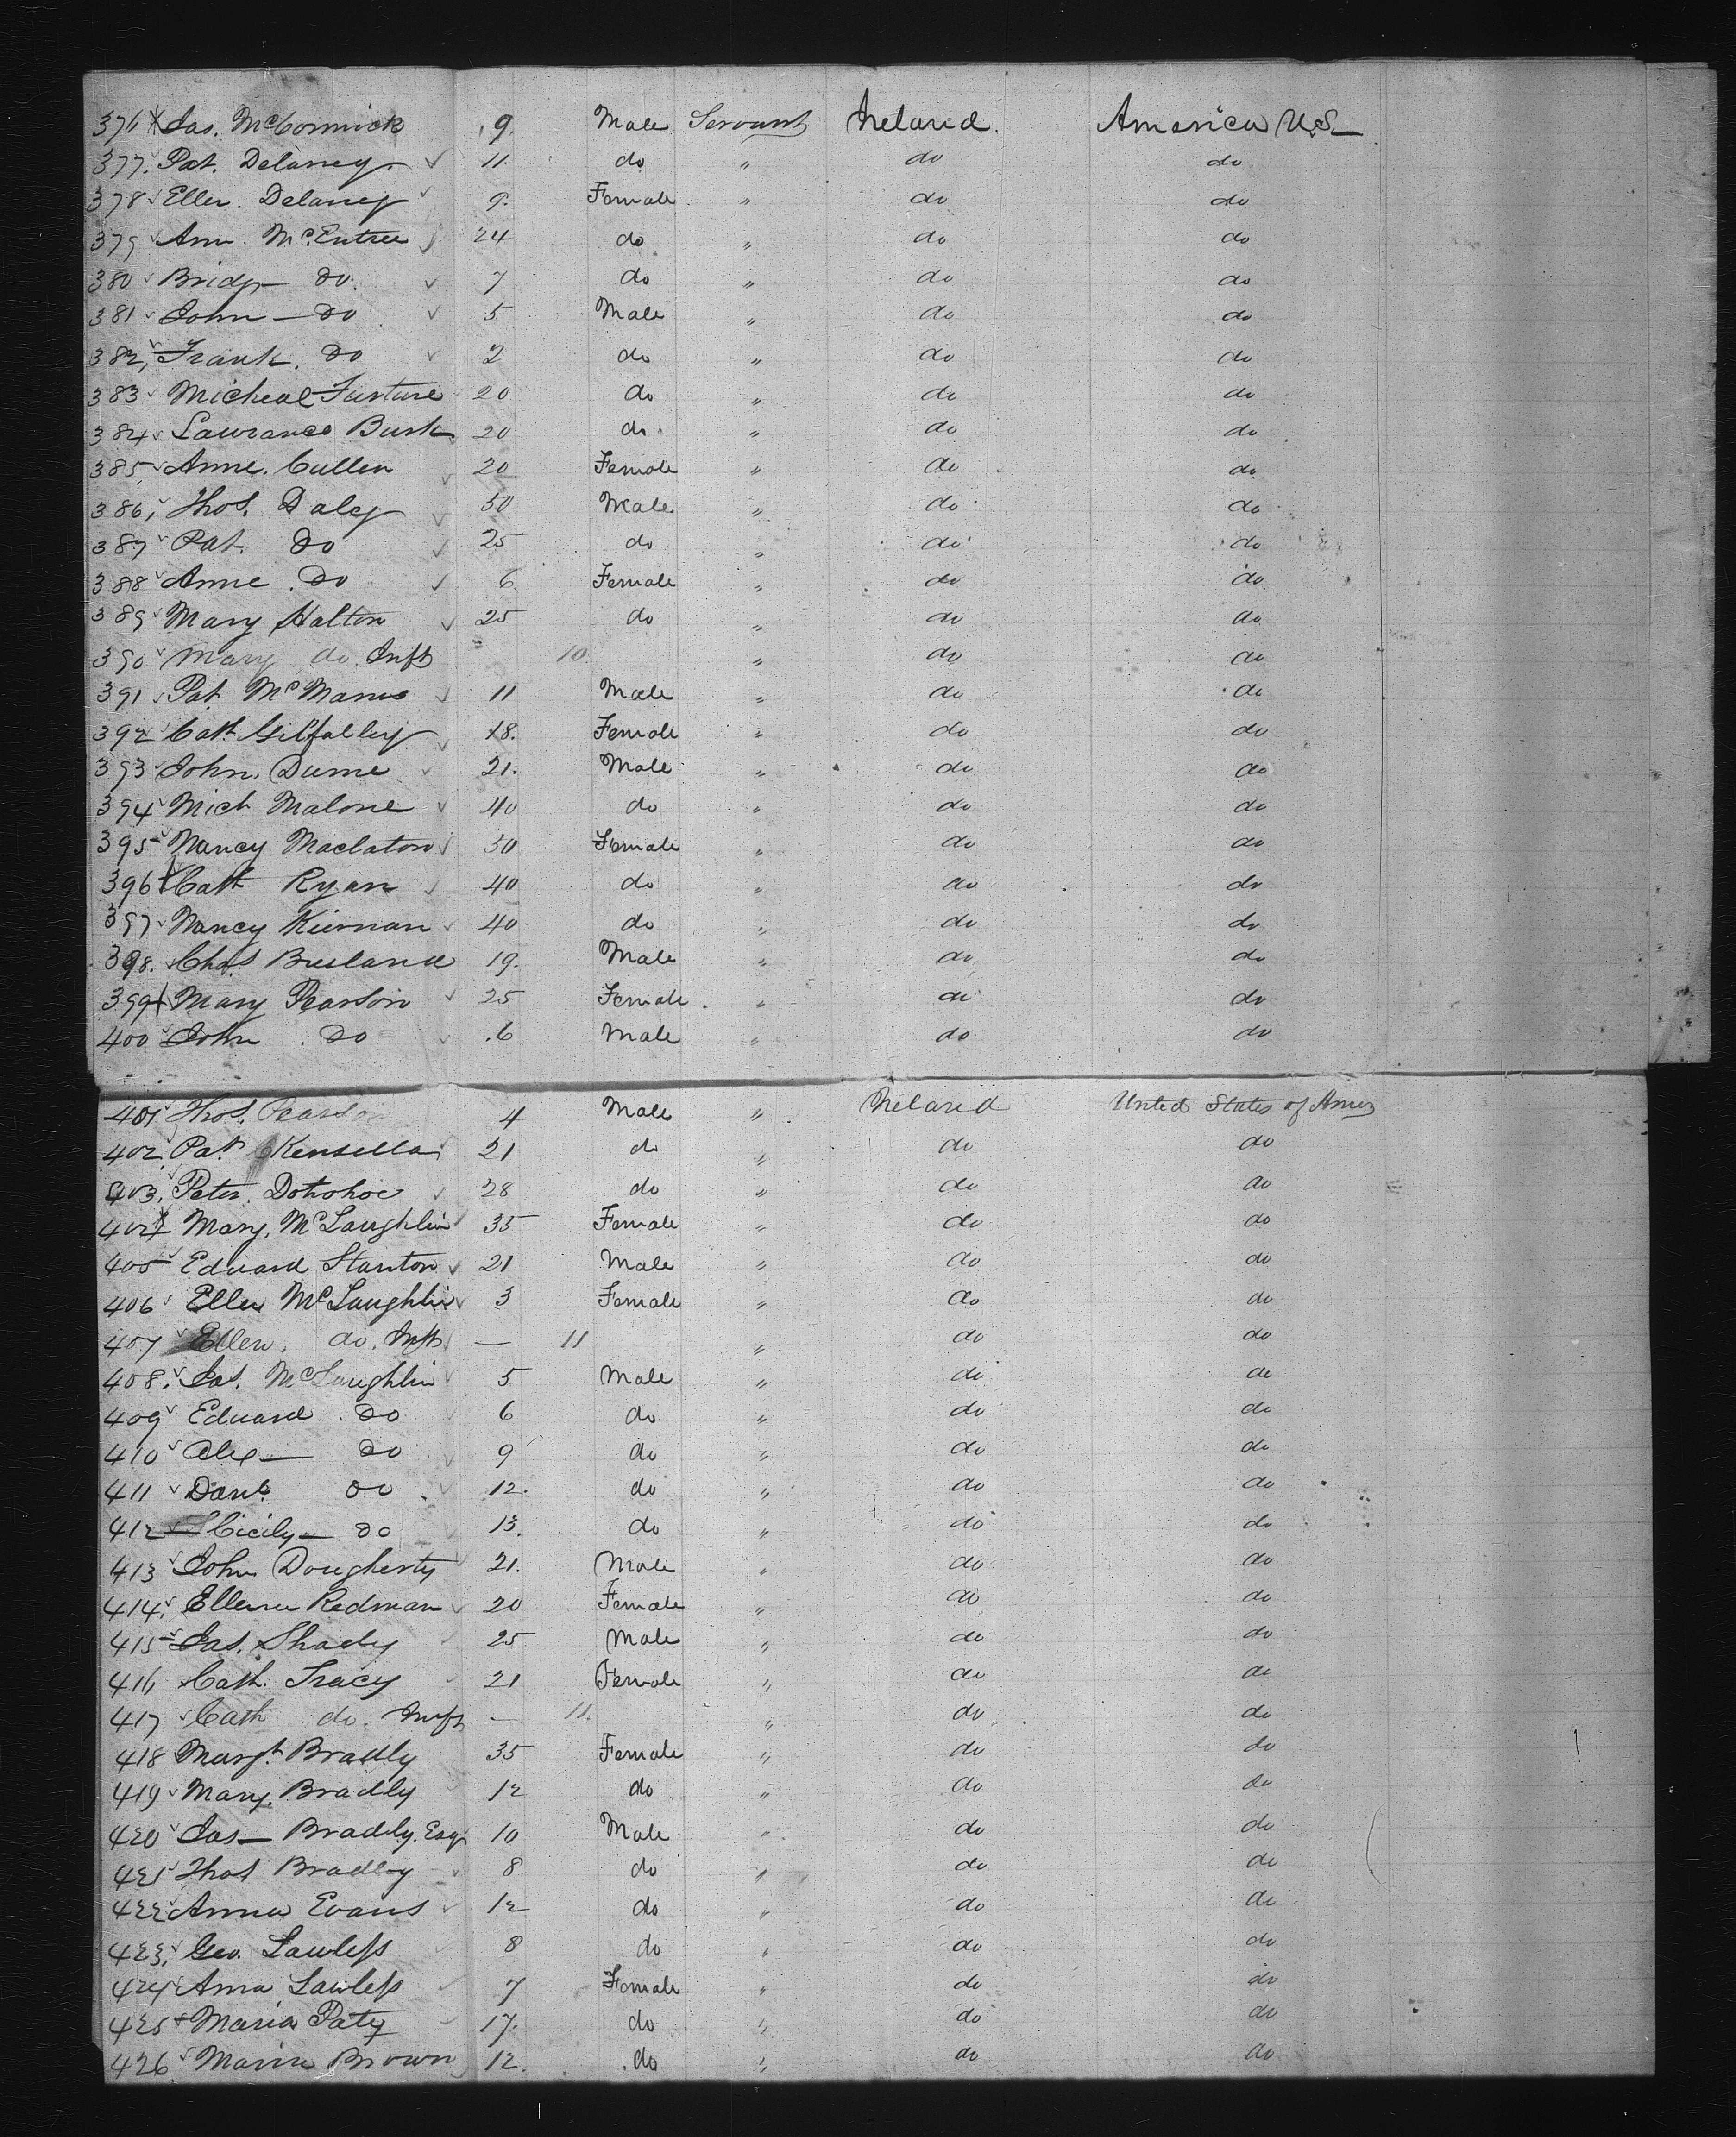 376 Jas. McCormick 9. Male Servant Ireland. America U.S.
377. Pat. Delaney 11. do " do do
378 Ellen. Delaney 9. Female " do do
379 Ann. McEntree 24 do " do do
380 Bridgt do. 7 do " do do
381 John — do 5 Male " do do
382, Frank. do 2 do " do do
383 Micheal 20 do " do do
384 Lawrance Burk 20 do " do do
385, Anne. Cullen 20 Female " do do
386, Thos. Daley 50 Male " do do
387 Pat. Do 25 do " do do
388 Anne. Do 6 Female " do do
389 Mary Halton 25 do " do do
390 Mary do. Inft 10. " do do
391 Pat McManus 11 Male " do do
392 Cath Gilfalley 18. Female " do do
393 John. Dunne 21. Male " do do
394 Mich Malone 40 do " do do
395 Nancy Maclaton 30 Female " do do
396 Cath Ryan 40 do " do do
397 Nancy Kiernan 40 do " do do
398. Chas Breland 19. Male " do do
399 Mary Pearson 25 Female " do do
400 John. Do 6 Male " do do
401 Thos. Pearson 4 Male " Ireland United States of Amer
402. Pat Kensella 21 do " do do
403. Peter. Donohoe 28 do " do do
404 Mary. McLaughlin 35 Female " do do
405 Edward Stanton 21 Male " do do
406 Ellen McLaughlin 3 Female " do do
407 Ellen. do. Inft. — 11 " do do
408. Jas. McLaughlin 5 Male " do do
409 Edward. Do 6 do " do do
410 Alex — Do 9 do " do do
411 Danl. Do. 12. do " do do
412 — Cicily — Do 13. do " do do
413 John Dougherty 21. Male " do do
414. Ellen Redman 20 Female " do do
415 Jas. Shady 25 Male " do do
416 Cath. Tracy 21 Female " do do
417 Cath do. Inft — 11. " do do
418 Margt. Bradly 35 Female " do do
419 Mary. Bradly 12 do " do do
420 Jas — Bradly. Esq 10 Male " do do
421 Thos Bradley 8 do " do do
422 Anna Evans 12 do " do do
423. Geo. Lawless 8 do " do do
424 Anna Lawless 7 Female " do do
425 Maria Paty 17. do " do do
426 Maria Brown 12. do " do do